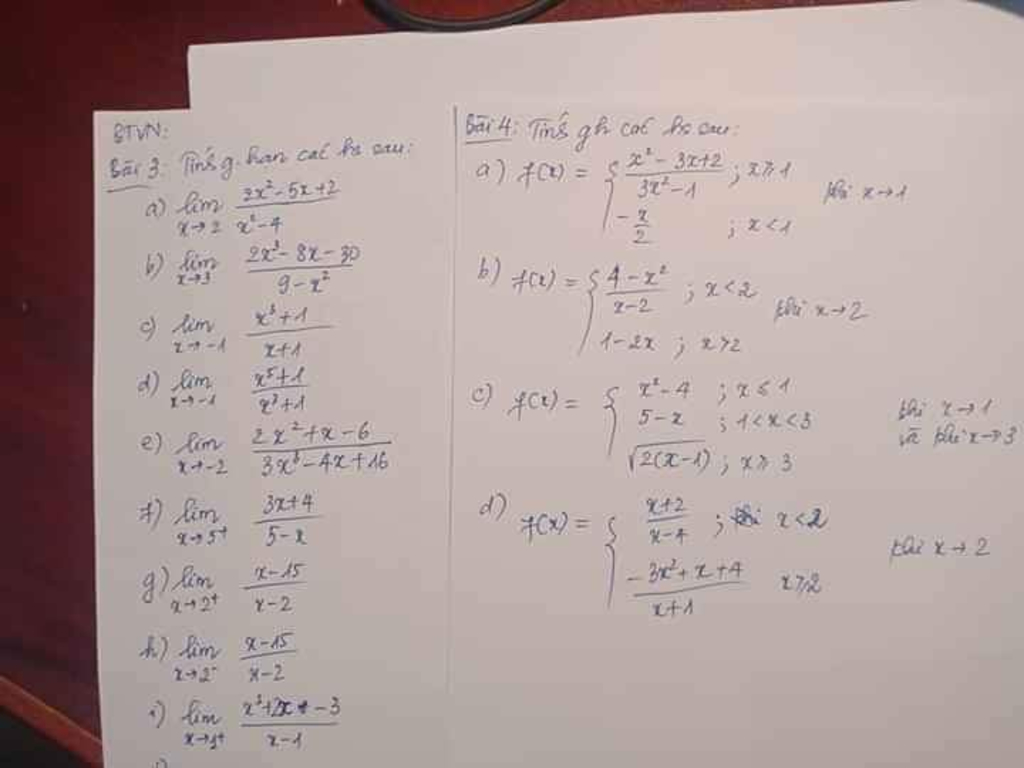 BTVN:
Bài 3: Tính g.hạn các hs sau:
a) lim x→2 (2x²-5x+2)/(x²-4)
b) lim x→3 (2x³-8x-30)/(9-x²)
c) lim x→-1 (x³+1)/(x+1)
d) lim x→-1 (x⁵+1)/(x³+1)
e) lim x→-2 (2x²+x-6)/(3x³-4x+16)
f) lim x→5⁺ (3x+4)/(5-x)
g) lim x→2⁺ (x-15)/(x-2)
h) lim x→2⁻ (x-15)/(x-2)
i) lim x→1⁺ (x³+2x-3)/(x-1)
Bài 4: Tính gh các hs sau:
a) f(x) = { (x²-3x+2)/(3x²-1) ; x≥1 khi x→1
-x/2 ; x<1
b) f(x) = { (4-x²)/(x-2) ; x<2 khi x→2
1-2x ; x≥2
c) f(x) = { x²-4 ; x≤1 khi x→1
5-x ; 1<x<3 và khi x→3
√2(x-1) ; x≥3
d) f(x) = { (x+2)/(x-4) ; x<2 khi x→2
(-3x²+x+4)/(x+1) x≥2